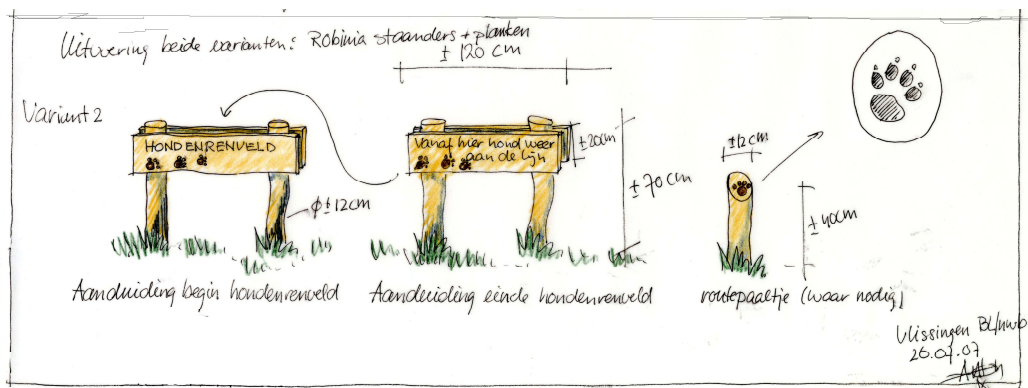 Uitvoering beide varianten: Robinia staanders + planken
± 120 cm
Variant 2
HONDENRENVELD
Vanaf hier hond weer
aan de lijn
±20cm
±70cm
φ±12cm
±12cm
±40cm
Aanduiding begin hondenrenveld
Aanduiding einde hondenrenveld
routepaaltje (waar nodig)
Vlissingen
26.07.07